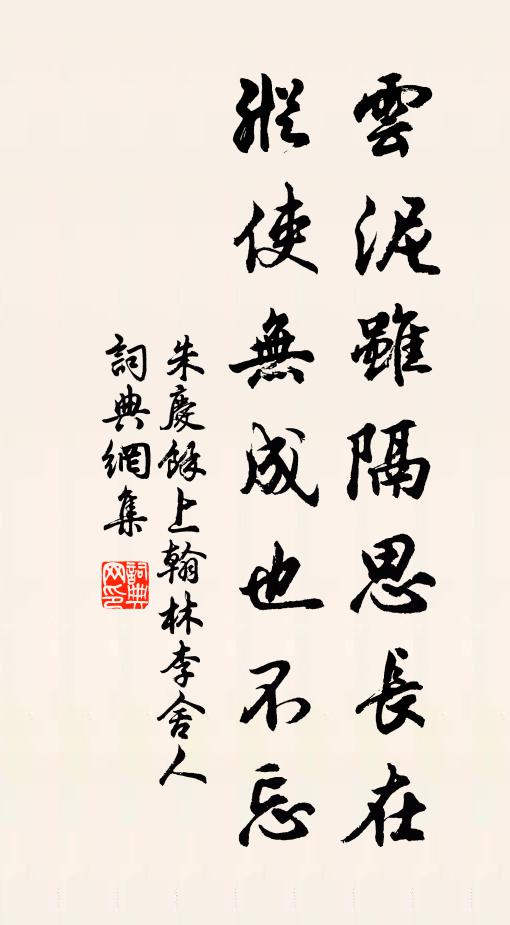 雲泥雖隔思長在
縱使無成也不忘
朱慶餘上翰林李舍人
詞典網集
詞典网印